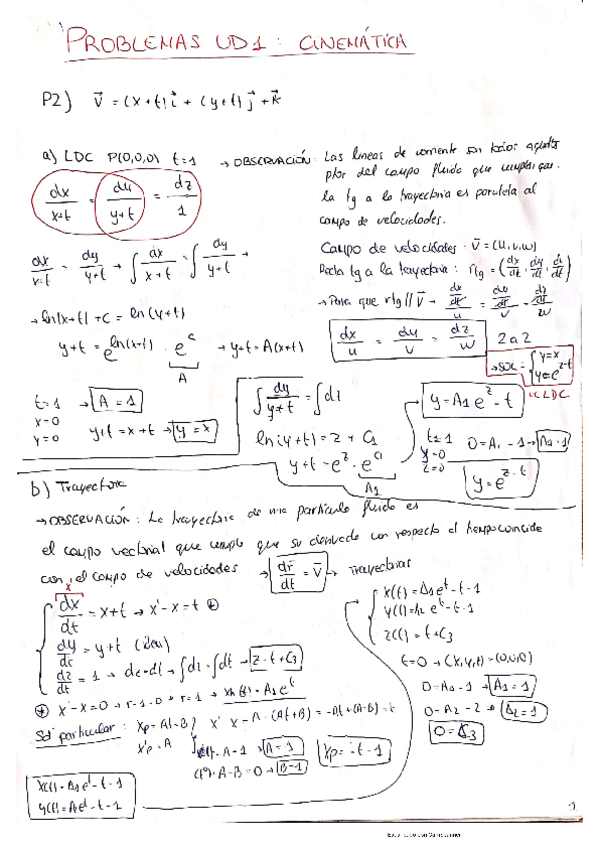 PROBLEMAS UD1: CINEMÁTICA
P2) V⃗ = (x+t)i⃗ + (y+t)j⃗ + k⃗
a) LDC P(0,0,0) t=1 → OBSERVACIÓN: Las líneas de corriente son todos aquellos
ptos del campo fluido que cumplan que
la tg a la trayectoria es paralela al
campo de velocidades.
dx/(x+t) = dy/(y+t) = dz/1
Campo de velocidades: V⃗ = (u,v,w)
Recta tg a la trayectoria: rtg = (dx/dt, dy/dt, dz/dt)
dx/(x+t) = dy/(y+t) → ∫dx/(x+t) = ∫dy/(y+t) →
→ Para que rtg // V⃗ → (dx/dt)/u = (dy/dt)/v = (dz/dt)/w
→ ln(x+t) + C = ln(y+t)
dx/u = dy/v = dz/w 2 a 2
y+t = e^ln(x+t) · e^C → y+t = A(x+t)
A
→ SOL: { y=x
y=e^z-t
LDC
t=1 → A=1
x=0
y=0
y+t = x+t → y=x
∫dy/(y+t) = ∫dz
ln(y+t) = z + C1
y+t = e^z · e^C1
A1
y = A1 e^z - t
t=1
y=0
z=0
0 = A1 - 1 → A1=1
y = e^z - t
b) Trayectoria
→ OBSERVACIÓN: La trayectoria de una partícula fluida es
el campo vectorial que cumple que su derivada con respecto al tiempo coincide
con el campo de velocidades → dr⃗/dt = V⃗ → Trayectorias
dx/dt = x+t → x'-x = t ⊛
dy/dt = y+t (idem)
dz/dt = 1 → dz=dt → ∫dz = ∫dt → z = t+C3
x(t) = A1e^t - t - 1
y(t) = A2 e^t - t - 1
z(t) = t + C3
t=0 → (x,y,z) = (0,0,0)
0 = A1 - 1 → A1=1
0 = A2 - → A2=1
0 = C3
⊛ x'-x=0 → r-1=0 → r=1 → xh(t) = A1e^t
Sol particular: xp = At+B } x'-x = A-(At+B) = -At+(A-B) = t
x'p = A
A=1
A-B=0 → B=-1
xp = -t-1
x(t) = A1e^t - t - 1
y(t) = A2e^t - t - 1
1